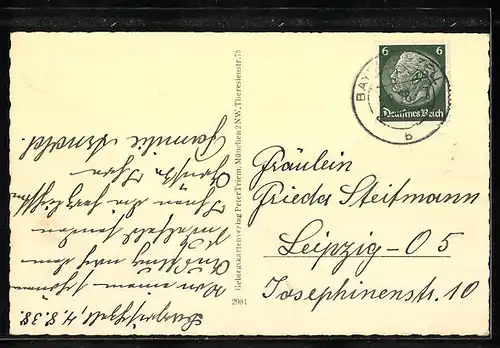 6 6
Deutsches Reich
b
Fräulein
Frieda Steitmann
Leipzig - O 5
Josephinenstr. 10
Gebirgskartenverlag Peter Triem, München 2 NW., Theresienstr. 75
2981
Bayrischzell, 4.8.38.
Von einem schönen
Ausflug nach dem
senden
Ihnen die herzlichsten
Grüße Ihre
Familie Arnold.